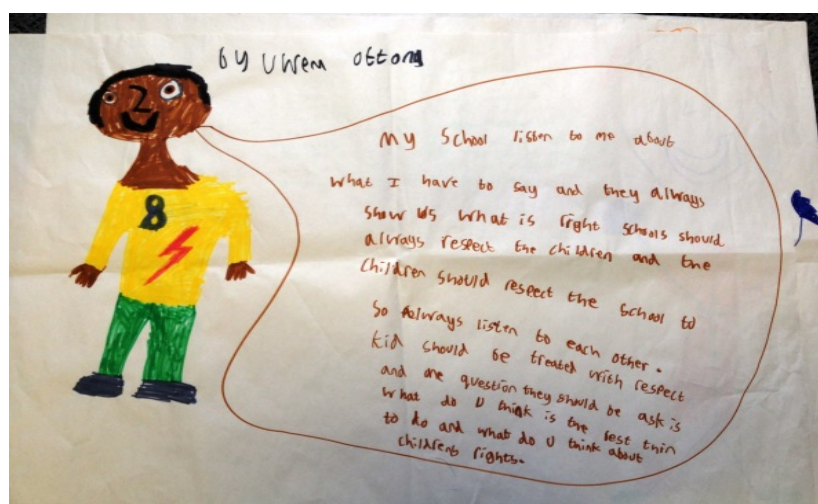 by Uwem Ottong
8
My School listen to me about
what I have to say and they always
show us what is right schools should
always respect the children and the
children should respect the school to
so always listen to each other.
kid should be treated with respect
and one question they should be ask is
what do U think is the best thin
to do and what do U think about
childrens rights.